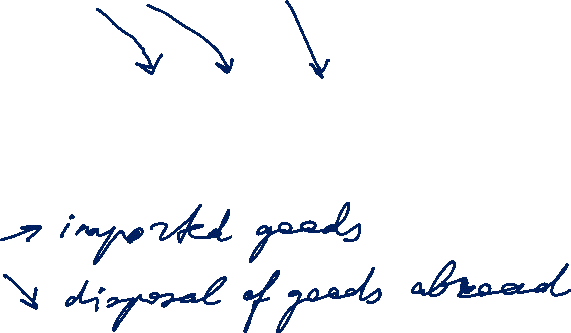 → imported goods
↘ disposal of goods abroad